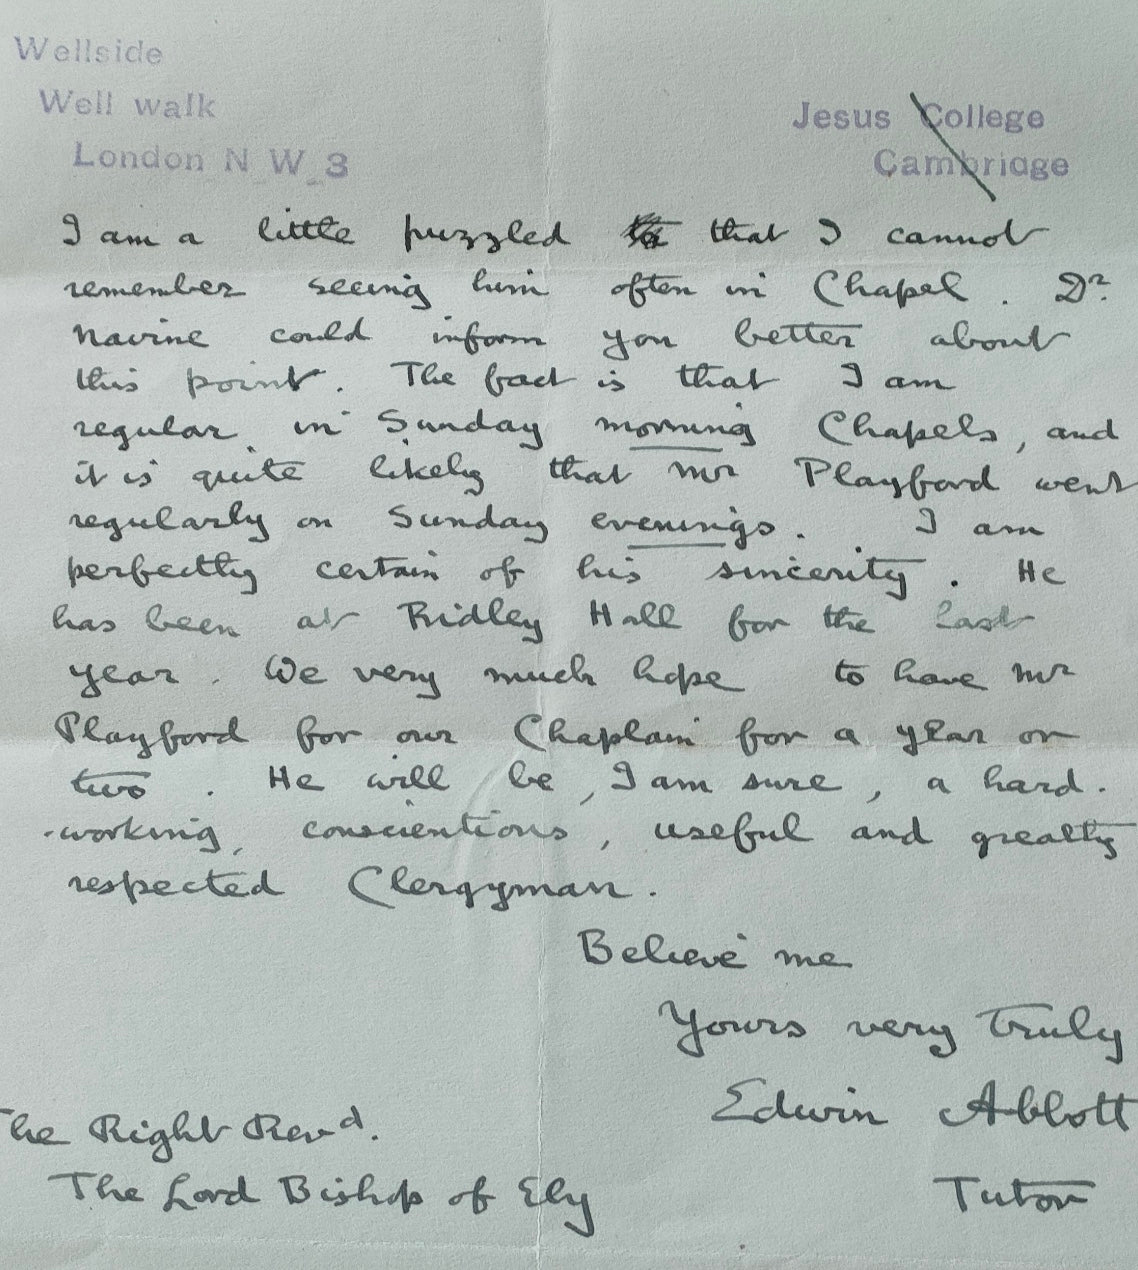 Wellside
Well walk
London N_W_3
Jesus College
Cambridge
I am a little puzzled that I cannot
remember seeing him often in Chapel. Dr.
Navine could inform you better about
this point. The fact is that I am
regular in Sunday morning Chapels, and
it is quite likely that Mr Playford went
regularly on Sunday evenings. I am
perfectly certain of his sincerity. He
has been at Ridley Hall for the last
year. We very much hope to have Mr
Playford for our Chaplain for a year or
two. He will be, I am sure, a hard-
-working, conscientious, useful and greatly
respected Clergyman.
Believe me
Yours very truly
Edwin Abbott
Tutor
The Right Revd.
The Lord Bishop of Ely